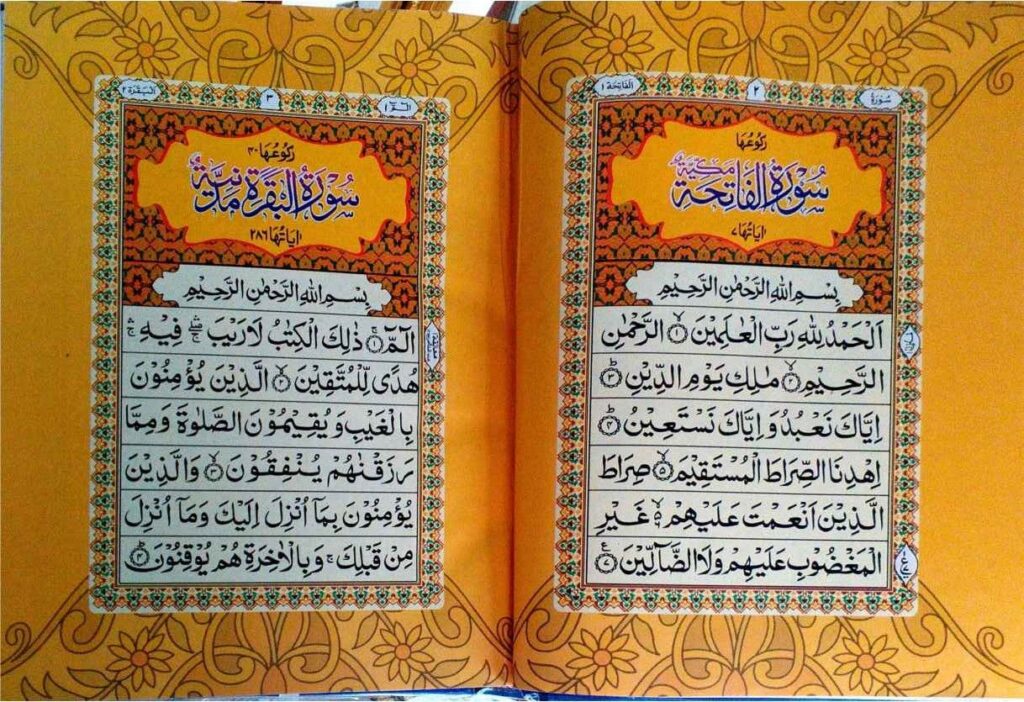 سُوْرَةُ
٢
اَلْفَاتِحَة ١
رُكُوْعُهَا
سُوْرَةُ الْفَاتِحَةِ مَكِّيَّةٌ
اٰيَاتُهَا ٧
بِسْمِ اللّٰهِ الرَّحْمٰنِ الرَّحِيْمِ
اَلْحَمْدُ لِلّٰهِ رَبِّ الْعٰلَمِيْنَ ۙ﴿١﴾ الرَّحْمٰنِ
الرَّحِيْمِ ۙ﴿٢﴾ مٰلِكِ يَوْمِ الدِّيْنِ ؕ﴿٣﴾
اِيَّاكَ نَعْبُدُ وَ اِيَّاكَ نَسْتَعِيْنُ ؕ﴿٤﴾
اِهْدِنَا الصِّرَاطَ الْمُسْتَقِيْمَ ۙ﴿٥﴾ صِرَاطَ
الَّذِيْنَ اَنْعَمْتَ عَلَيْهِمْ ۙ﴿٦﴾ غَيْرِ
الْمَغْضُوْبِ عَلَيْهِمْ وَلَا الضَّآلِّيْنَ ﴿٧﴾
الٓمّٓ ١
٣
اَلْبَقَرَة ٢
رُكُوْعُهَا ٤٠
سُوْرَةُ الْبَقَرَةِ مَدَنِيَّةٌ
اٰيَاتُهَا ٢٨٦
بِسْمِ اللّٰهِ الرَّحْمٰنِ الرَّحِيْمِ
الٓمّٓ ۚ﴿١﴾ ذٰلِكَ الْكِتٰبُ لَا رَيْبَ ۛۖۚ فِيْهِ ۛۚ
هُدًى لِّلْمُتَّقِيْنَ ۙ﴿٢﴾ الَّذِيْنَ يُؤْمِنُوْنَ
بِالْغَيْبِ وَ يُقِيْمُوْنَ الصَّلٰوةَ وَمِمَّا
رَزَقْنٰهُمْ يُنْفِقُوْنَ ۙ﴿٣﴾ وَالَّذِيْنَ
يُؤْمِنُوْنَ بِمَآ اُنْزِلَ اِلَيْكَ وَمَآ اُنْزِلَ
مِنْ قَبْلِكَ ۚ وَبِالْاٰخِرَةِ هُمْ يُوْقِنُوْنَ ؕ﴿٤﴾